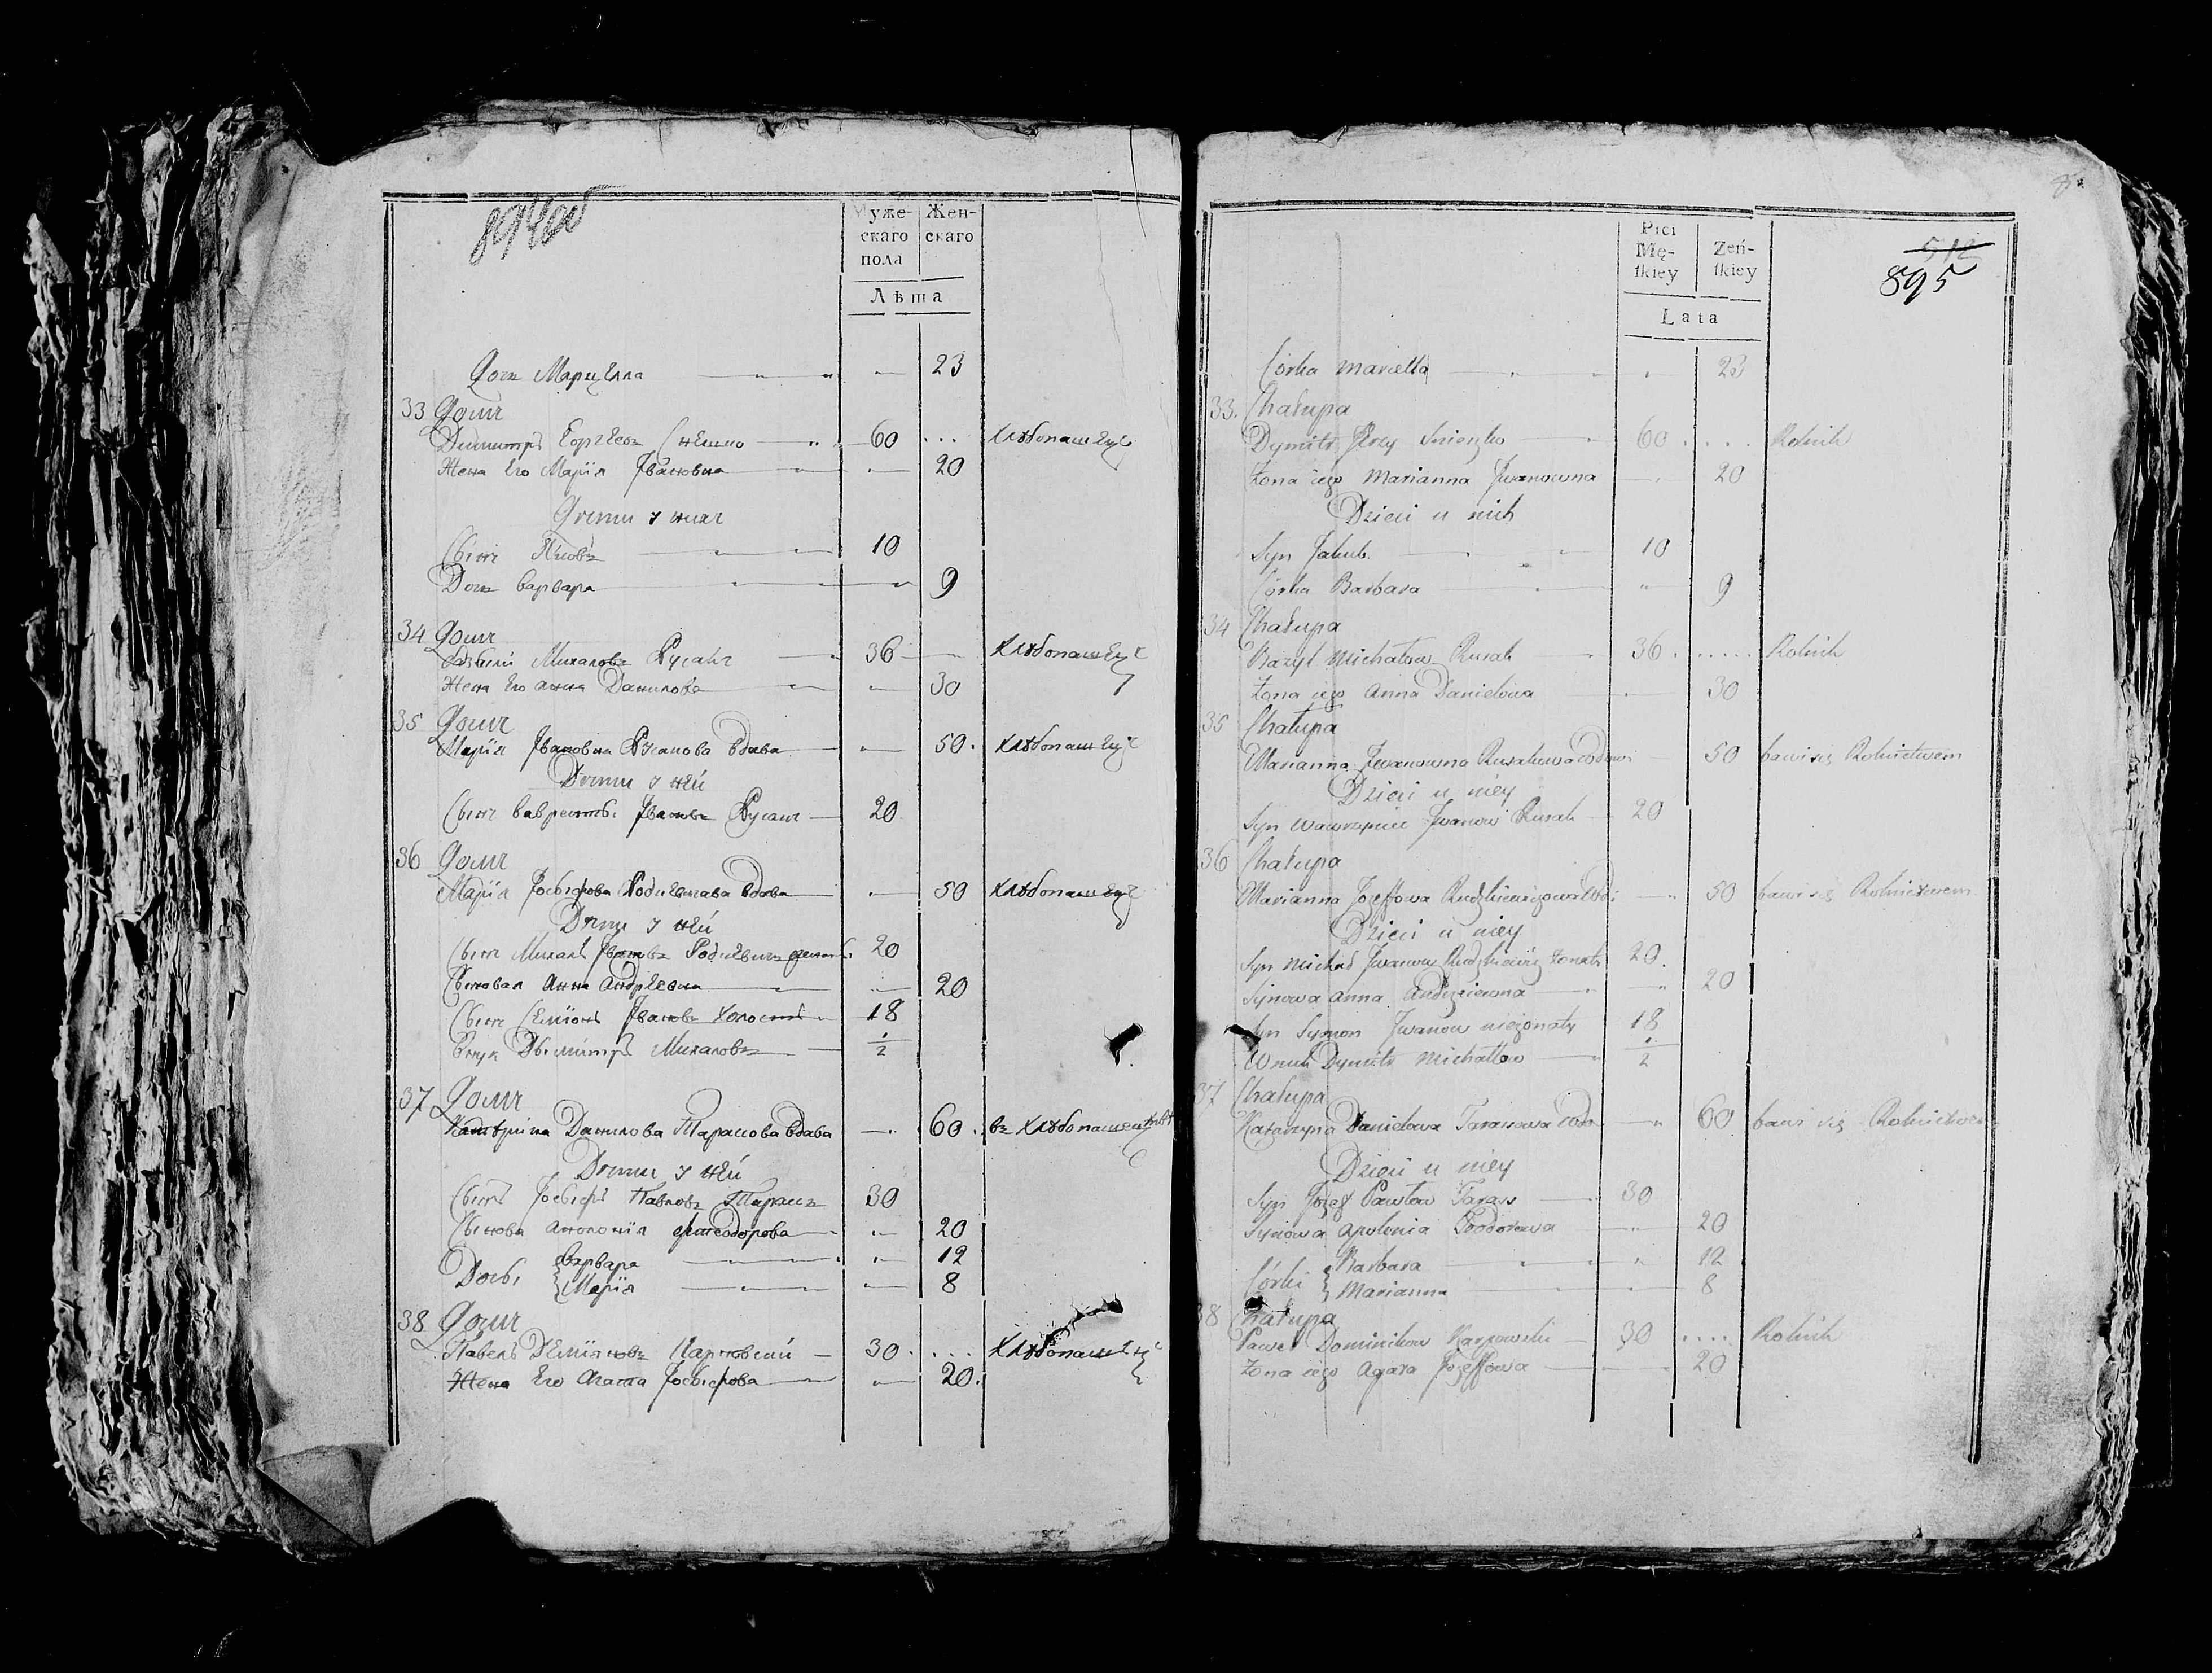 894об
Муже-
скаго
пола
Жен-
скаго
Лѣта
Дочь Марцелла 23
33 Домъ
Димитръ Еоргеевъ Снешко 60 Хлѣбопашецъ
Жена Его Марія Ивановна 20
Дѣти у нихъ
Сынъ Яковъ 10
Дочь Варвара 9
34 Домъ
Базылій Михаловъ Русакъ 36 Хлѣбопашецъ
Жена Его Анна Данилова 30
35 Домъ
Марія Ивановна Русакова Вдова 50 Хлѣбопашецъ
Дѣти у ней
Сынъ Иванъ Русакъ 20
36 Домъ
Марія Іосыфова Вдова 50 Хлѣбопашецъ
Дѣти у ней
Сынъ Михалъ Ивановъ Родкевичъ 20
Сыновая Анна Андрѣевна 20
Сынъ Семіонъ Ивановъ Холостъ 18
Внук Дымитръ Михаловъ 1/2
37 Домъ
Катэрина Данилова Тарасова Вдова 60 въ
Дѣти у ней
Сынъ Іосыфъ Павловъ Тарасъ 30
Сынова Аполонія Фтеодорова 20
Дочь Варвара 12
Марія 8
38 Домъ
Павелъ Деміяновъ Карповскій 30 Хлѣбопашецъ
Жена Его Агата Іосыфова 20
Płci
Mę-
skiey
Żeń-
skiey
Lata
512
895
Córka Marcella 23
33. Chałupa
Dymitr Jerzy Snieszko 60 Rolnik
Żona iego Marianna Jwanowna 20
Dzieci u nich
Syn Jakub 10
Córka Barbara 9
34 Chałupa
Bazyl Michałow Rusak 36 Rolnik
Żona iego Anna Danielowa 30
35 Chałupa
Marianna Jwanowna Rusakowa 50 bawi się Rolnictwem
Dzieci u niey
Syn Wawrzyniec Jwanow Rusak 20
36 Chałupa
Marianna Jozeffowa Rudzkiewiczowa 50 bawi się Rolnictwem
Dzieci u niey
Syn Michał Jwanow Rudzkiewicz żonaty 20
Synowa Anna Andrzeiewna 20
Syn Symon Jwanow nieżonaty 18
Wnuk Dymitr Michałow 1/2
37 Chałupa
Katarzyna Danielowa Tarasowa 60 bawi się Rolnictwem
Dzieci u niey
Syn Jozef Pawłow Tarass 30
Synowa Apolonia Teodorowa 20
Córki Barbara 12
Marianna 8
38 Chałupa
Paweł Dominikow Karpowski 30 Rolnik
Żona iego Agata Jozeffowa 20